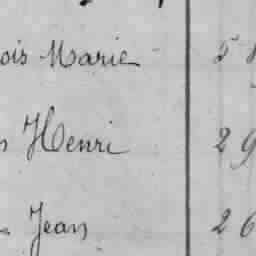 ois Marie 5
s Henri 29
Jean 26